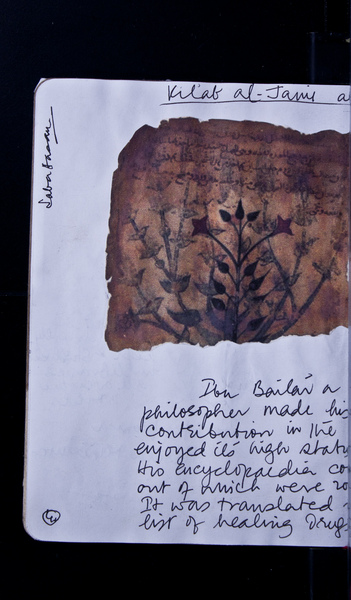 Kitab al-Jami a
Ibn Baitar a
philosopher made his
contribution in the
enjoyed its high statu
His encyclopaedia co
out of which were 20
It was translated
list of healing drugs